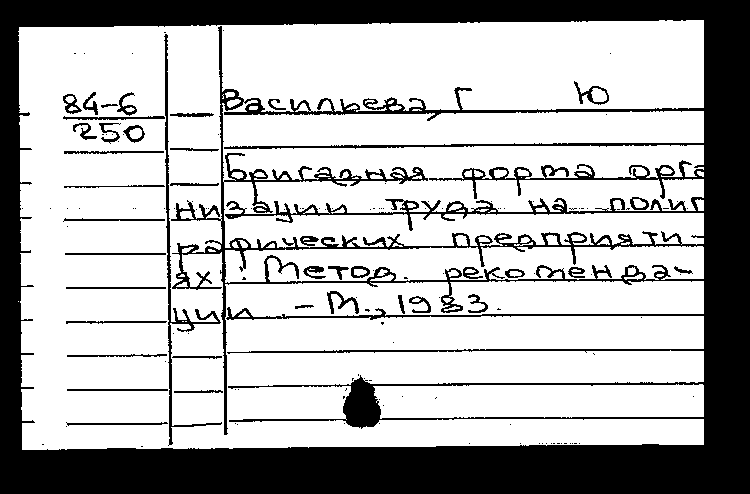 84-6
250
Васильева, Г Ю
Бригадная форма орга
низации труда на полиг
рафических предприяти-
ях : Метод. рекоменда-
ции. - М., 1983.